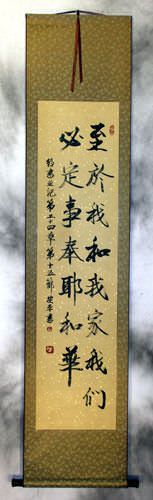 至於我和我家我们
必定事奉耶和華
約書亞記第二十四章第十五節